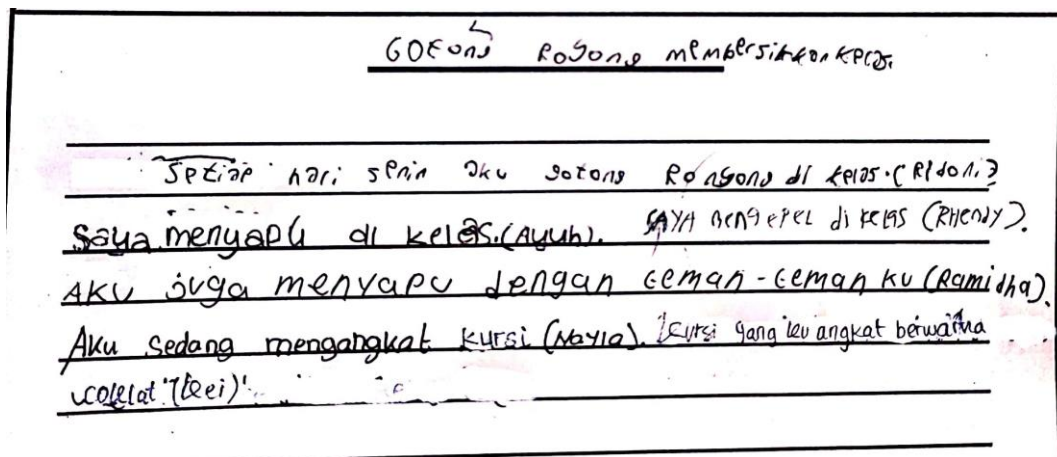 GOtong Royong membersihkan kelas.
Setiap hari senin aku gotong Rongong di kelas. (Ridoni)
Saya menyapu di kelas. (Ayuh). SAYA mengepel di kelas (RHendy).
AKU juga menyapu dengan teman-teman ku (Ramidha).
Aku sedang mengangkat kursi (Nayla). kursi yang ku angkat berwarna
coklat